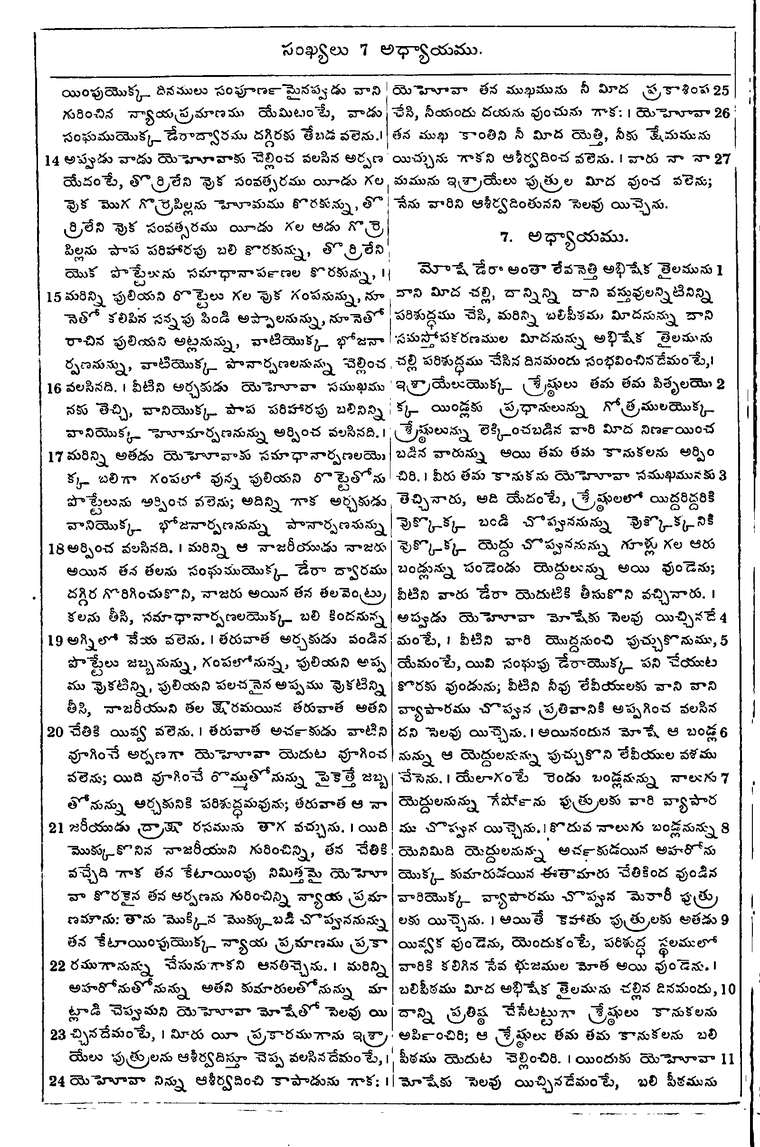 సంఖ్యలు 7 అధ్యాయము.
యింపుయొక్క దినములు సంపూణ౯మైనప్పుడు వాని
గురించిన న్యాయప్రమాణము యేమిటంటే, వాడు
సంఘముయొక్క డేరాద్వారము దగ్గిరకు తేబడ వలెను.।
14 అప్పుడు వాడు యెహోవాకు చెల్లించ వలసిన అర్పణ
యేదంటే, తొర్రిలేని వొక సంవత్సరము యీడు గల
వొక మొగ గొర్రెపిల్లను హోమము కొరకున్ను, తొ
ర్రిలేని వొక సంవత్సరము యీడు గల ఆడు గొర్రె
పిల్లను పాప పరిహారపు బలి కొరకున్ను, తొర్రిలేని
యొక పొట్టేలును సమాధానాప౯ణల కొరకున్ను, ।
15 మరిన్ని పులియని రొట్టెలు గల వొక గంపనున్ను, నూ
నెతో కలిపిన సన్నపు పిండి అప్పాలనున్ను, నూనెతో
రాచిన పులియని అట్లనున్ను, వాటియొక్క భోజనా
ర్పణనున్ను, వాటియొక్క పానార్పణలనున్ను చెల్లించ
16 వలసినది. । వీటిని అర్చకుడు యెహోవా సముఖము
నకు తెచ్చి, వానియొక్క పాప పరిహారపు బలినిన్ని
వానియొక్క హోమార్పణనున్ను అర్పించ వలసినది. ।
17 మరిన్ని అతడు యెహోవాకు సమాధానార్పణలయొ
క్క బలిగా గంపలో వున్న పులియని రొట్టెతోను
పొట్టేలును అర్పించ వలెను; అదిన్ని గాక అర్చకుడు
వానియొక్క భోజనార్పణనున్ను పానార్పణనున్ను
18 అర్పించ వలసినది. । మరిన్ని ఆ నాజరీయుడు నాజరు
అయిన తన తలను సంఘముయొక్క డేరా ద్వారము
దగ్గిర గొరిగించుకొని, నాజరు అయిన తన తలవెంట్రు
కలను తీసి, సమాధానార్పణలయొక్క బలి కిందనున్న
19 అగ్నిలో వేయ వలెను. । తరువాత అర్చకుడు వండిన
పొట్టేలు జబ్బనున్ను, గంపలోనున్న, పులియని అప్ప
ము వొకటిన్ని, పులియని పలచనైన అప్పము వొకటిన్ని
తీసి, నాజరీయుని తల క్షౌరమయిన తరువాత అతని
20 చేతికి యివ్వ వలెను. । తరువాత అచ౯కుడు వాటిని
వూగించే అర్పణగా యెహోవా యెదుట వూగించ
వలెను; యిది వూగించే రొమ్ముతోనున్ను పైకెత్తే జబ్బ
తోనున్ను అర్చకునికి పరిశుద్ధమవును; తరువాత ఆ నా
21 జరీయుడు ద్రాక్షా రసమును తాగ వచ్చును. । యిది
మొక్కుకొనిన నాజరీయుని గురించిన్ని, తన చేతికి
వచ్చేది గాక తన కేటాయింపు నిమిత్తమై యెహో
వా కొరకైన తన అర్పణను గురించిన్ని న్యాయ ప్రమా
ణమౌను: తాను మొక్కిన మొక్కుబడి చొప్పుననున్ను
తన కేటాయింపుయొక్క న్యాయ ప్రమాణము ప్రకా
22 రముగానున్ను చేసునుగాకని ఆనతిచ్చెను. । మరిన్ని
అహరోనుతోనున్ను అతని కుమారులతోనున్ను మా
ట్లాడి చెప్పుమని యెహోవా మోషేతో సెలవు యి
23 చ్చినదేమంటే, । మీరు యీ ప్రకారముగాను ఇశ్రా
యేలు పుత్రులను ఆశీర్వదిస్తూ చెప్ప వలసినదేమంటే, ।
24 యెహోవా నిన్ను ఆశీర్వదించి కాపాడును గాక: ।
యెహోవా తన ముఖమును నీ మీద ప్రకాశింప 25
చేసి, నీయందు దయను వుంచును గాక: । యెహోవా 26
తన ముఖ కాంతిని నీ మీద యెత్తి, నీకు క్షేమమును
యిచ్చును గాకని ఆశీర్వదించ వలెను. । వారు నా నా 27
మమును ఇశ్రాయేలు పుత్రుల మీద వుంచ వలెను;
నేను వారిని ఆశీర్వదింతునని సెలవు యిచ్చెను.
7. అధ్యాయము.
మోషే డేరా అంతా లేవనెత్తి అభిషేక తైలమును 1
దాని మీద చల్లి, దాన్నిన్ని దాని వస్తువులన్నిటినిన్ని
పరిశుద్ధము చేసి, మరిన్ని బలిపీఠము మీదనున్ను దాని
సమస్తోపకరణముల మీదనున్ను అభిషేక తైలమును
చల్లి పరిశుద్ధము చేసిన దినమందు సంభవించినదేమంటే, ।
ఇశ్రాయేలుయొక్క శ్రేష్ఠులు తమ తమ పితృలయొ 2
క్క యిండ్లకు ప్రధానులున్ను గోత్రములయొక్క
శ్రేష్ఠులున్ను లెక్కించబడిన వారి మీద నిణ౯యించ
బడిన వారున్ను అయి తమ తమ కానుకలను అర్పిం
చిరి. । వీరు తమ కానుకను యెహోవా సముఖమునకు 3
తెచ్చినారు, అది యేదంటే, శ్రేష్ఠులలో యిద్దరిద్దరికి
వొక్కొక్క బండి చొప్పుననున్ను వొక్కొక్కనికి
వొక్కొక్క యెద్దు చొప్పుననున్ను గూళ్లు గల ఆరు
బండ్లున్ను పండెండు యెద్దులున్ను అయి వుండెను;
వీటిని వారు డేరా యెదుటికి తీసుకొని వచ్చినారు. ।
అప్పుడు యెహోవా మోషేకు సెలవు యిచ్చినదే 4
మంటే, । వీటిని వారి యొద్దనుంచి పుచ్చుకొనుము, 5
యేమంటే, యివి సంఘపు డేరాయొక్క పని చేయుట
కొరకు వుండును; వీటిని నీవు లేవీయులకు వాని వాని
వ్యాపారము చొప్పున ప్రతివానికి అప్పగించ వలసిన
దని సెలవు యిచ్చెను. । అయినందున మోషే ఆ బండ్ల 6
నున్ను ఆ యెద్దులనున్ను పుచ్చుకొని లేవీయుల వశము
చేసెను. । యేలాగంటే రెండు బండ్లనున్ను నాలుగు 7
యెద్దులనున్ను గేషో౯ను పుత్రులకు వారి వ్యాపార
ము చొప్పున యిచ్చెను. । కొదువ నాలుగు బండ్లనున్ను 8
యెనిమిది యెద్దులనున్ను అచ౯కుడయిన అహరోను
యొక్క కుమారుడయిన ఈతామారు చేతికింద వుండిన
వారియొక్క వ్యాపారము చొప్పున మెరారీ పుత్రు
లకు యిచ్చెను. । అయితే కెహాతు పుత్రులకు అతడు 9
యివ్వక వుండెను, యెందుకంటే, పరిశుద్ధ స్థలములో
వారికి కలిగిన సేవ భుజముల మోత అయి వుండెను. ।
బలిపీఠము మీద అభిషేక తైలమును చల్లిన దినమందు, 10
దాన్ని ప్రతిష్ఠ చేసేటట్టుగా శ్రేష్ఠులు కానుకలను
అపి౯ంచిరి; ఆ శ్రేష్ఠులు తమ తమ కానుకలను బలి
పీఠము యెదుట చెల్లించిరి. । యిందుకు యెహోవా 11
మోషేకు సెలవు యిచ్చినదేమంటే, బలి పీఠమును